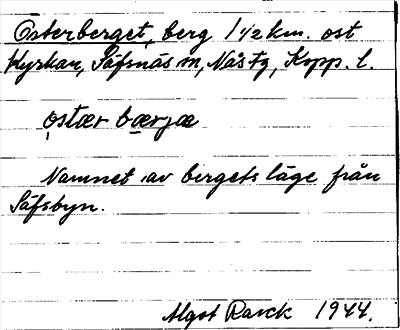 Österberget, berg 1 1/2 km. ost
kyrkan, Säfsnäs sn, Nås tg, Kopp. l.
ostær bærjæ
Namnet av bergets läge från
Säfsbyn.
Algot Rarck 1944.